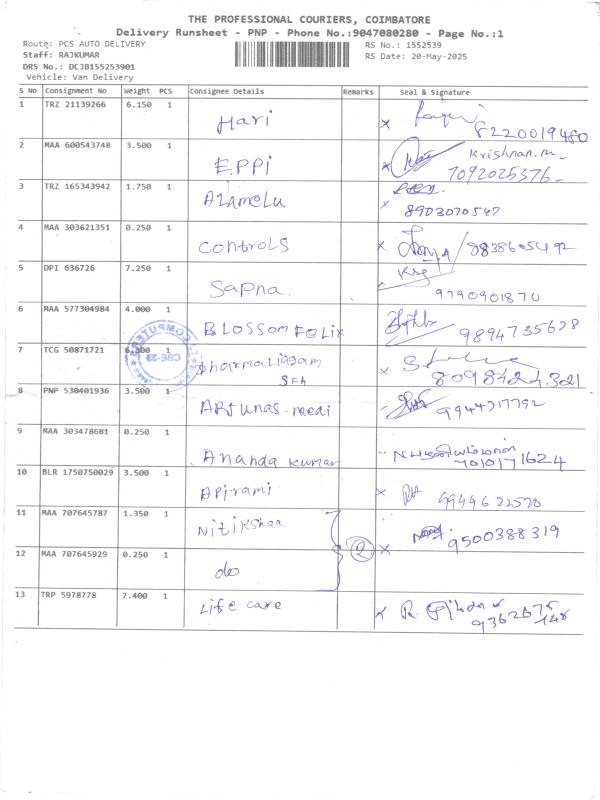 THE PROFESSIONAL COURIERS, COIMBATORE
Delivery Runsheet - PNP - Phone No.:9047080280 - Page No.:1
Route: PCS AUTO DELIVERY
Staff: RAJKUMAR
DRS No.: DCJB155253901
Vehicle: Van Delivery
RS No.: 1552539
RS Date: 20-May-2025
S No Consignment No Weight PCS Consignee Details Remarks Seal & Signature
1 TRZ 21139266 6.150 1 Hari 8220019480
2 MAA 600543748 3.500 1 EPPI Krishnan.m 7092025376
3 TRZ 165343942 1.750 1 Alamelu 8903070547
4 MAA 303621351 0.250 1 Controls 8838605492
5 DPI 636726 7.250 1 Sapna. 9790901870
6 MAA 577304984 4.000 1 Blossom Felix 9894735628
7 TCG 50871721 1 Dharmaliagam
8 PNP 530401936 3.500 1 Arjunas-medi
9 MAA 303478681 0.250 1 Ananda Kumar 7010171624
10 BLR 1750750029 3.500 1 Apirami
11 MAA 707645787 1.350 1 Nitikshaa 2 9500388319
12 MAA 707645929 0.250 1 do
13 TRP 5978778 2.400 1 Life care R.
COMPUTER
CBE-33